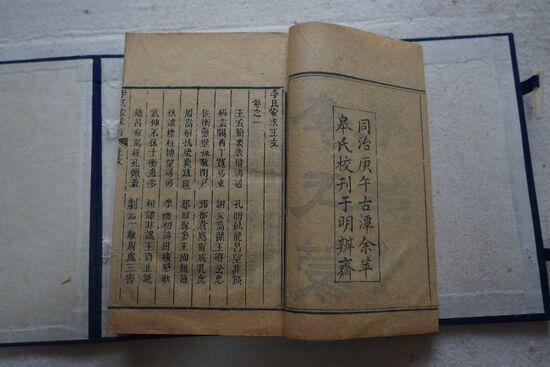 同治庚午古潭余苹
皋氏校刊于明辨齋
李氏蒙求正文
卷之一
王戎簡要裴楷清通　孔明臥龍呂望非熊
楊震關西丁寬易東　謝安高潔王導公忠
匡衡鑿壁孫敬閉戶　郅都蒼鷹甯成乳虎
周嵩狼抗梁冀跋扈　郗超髯參王珣短簿
伏波標柱博望尋河　李陵初詩田橫感歌
武仲不休士衡患多　桓譚非讖王商止訛
嵇呂命駕程孔傾蓋　劇孟一敵周處三害